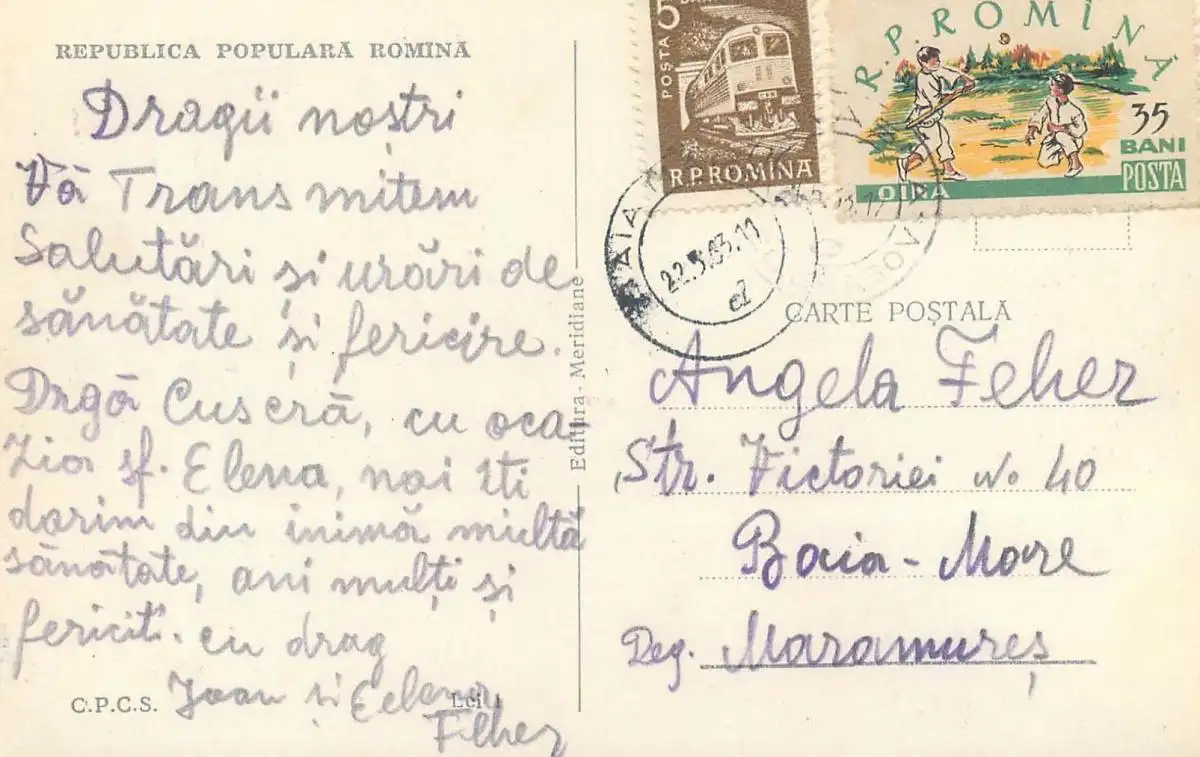 REPUBLICA POPULARĂ ROMÎNĂ
Dragii noștri
Vă Transmitem
Salutări și urări de
sănătate și fericire.
Dragă Cuscră, cu oca-
zia sf. Elena, noi îți
dorim din inimă multă
sănătate, ani mulți și
fericiti. cu drag
Ioan și Eelena
Feher
C.P.C.S.
Lei 1
Editura - Meridiane
5
POSTA
R.P.ROMINA
R.P.ROMÎNĂ
35
BANI
POSTA
OINA
BAIA
22.5.63.11
CARTE POȘTALĂ
Angela Feher
Str. Victoriei No 40
Baia-Mare
Reg. Maramureș